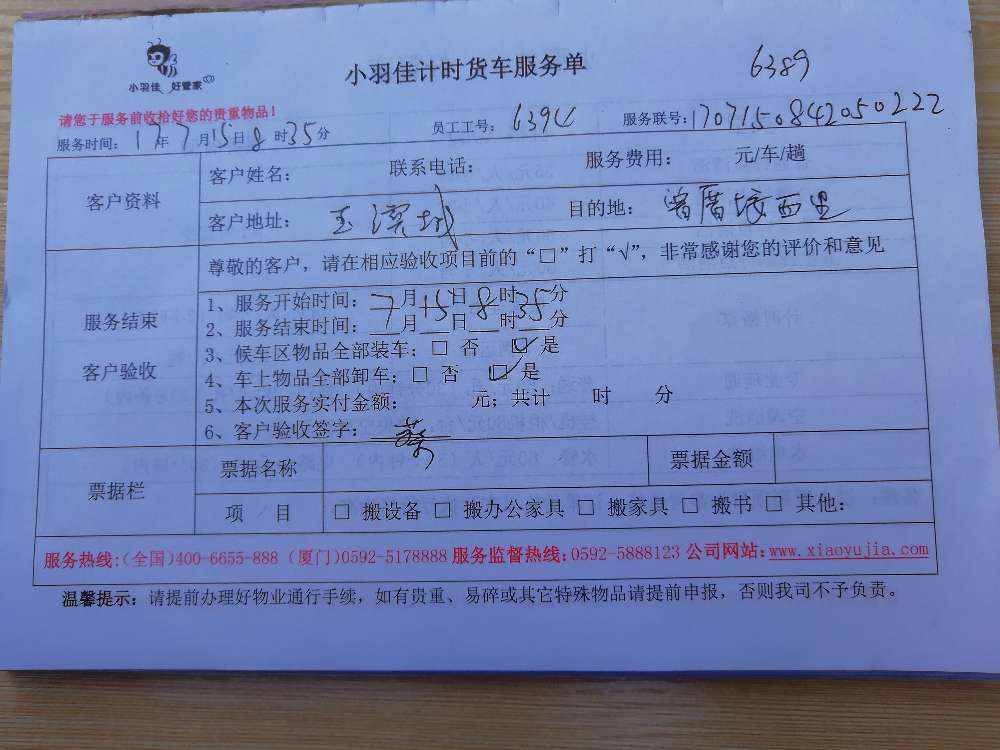 小羽佳 好管家
小羽佳计时货车服务单
6389
请您于服务前收拾好您的贵重物品！
服务时间：17年7月15日8时35分 员工工号：6394 服务联号：1707150842050222
客户资料
客户姓名： 联系电话： 服务费用： 元/车/趟
客户地址：玉滨城 目的地：曾厝垵西里
服务结束
客户验收
尊敬的客户，请在相应验收项目前的“□”打“√”，非常感谢您的评价和意见
1、服务开始时间：7月15日8时35分
2、服务结束时间：___月___日___时___分
3、候车区物品全部装车：□ 否 ☑ 是
4、车上物品全部卸车：□ 否 ☑ 是
5、本次服务实付金额： 元；共计 时 分
6、客户验收签字：蔡
票据栏
票据名称 票据金额
项 目 □ 搬设备 □ 搬办公家具 □ 搬家具 □ 搬书 □ 其他：
服务热线：(全国)400-6655-888 (厦门)0592-5178888 服务监督热线：0592-5888123 公司网站：www.xiaoyujia.com
温馨提示：请提前办理好物业通行手续，如有贵重、易碎或其它特殊物品请提前申报，否则我司不予负责。